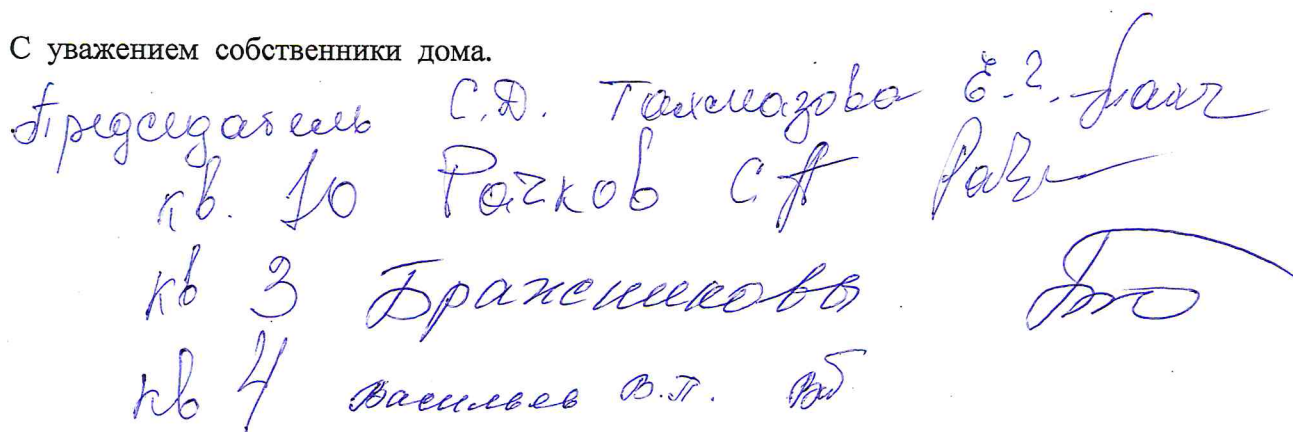 С уважением собственники дома.
Председатель С.Д. Тахмазова Е.Г.
кв. 10 Рачков С А
кв 3 Бражниковы
кв 4 Васильев В.П.